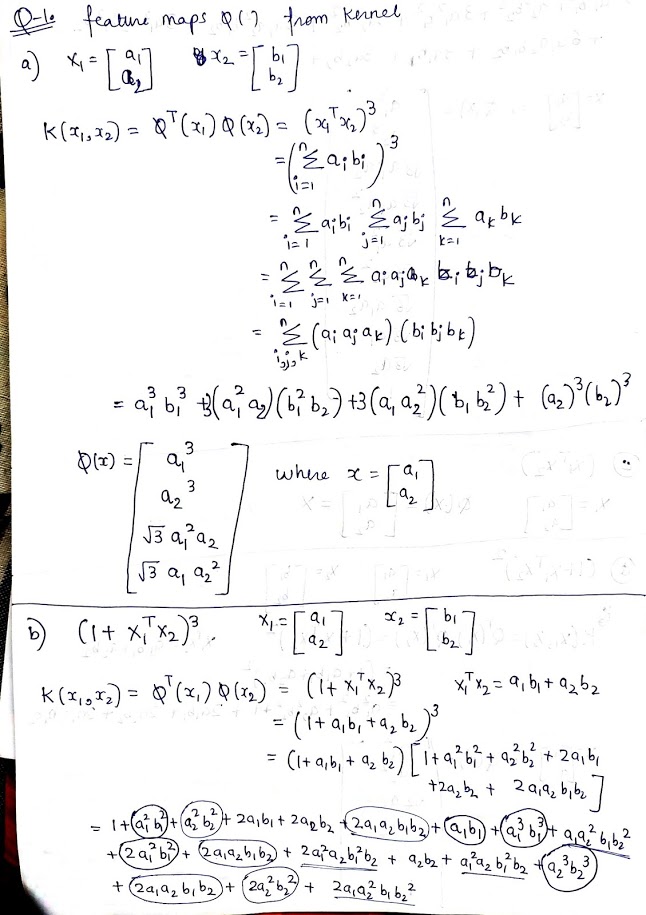 Q-1. feature maps φ(·) from Kernel
a) x₁ = [a₁ a₂] x₂ = [b₁ b₂]
K(x₁,x₂) = φᵀ(x₁) φ(x₂) = (x₁ᵀx₂)³
= (Σᵢ₌₁ⁿ aᵢbᵢ)³
= Σᵢ₌₁ⁿ aᵢbᵢ Σⱼ₌₁ⁿ aⱼbⱼ Σₖ₌₁ⁿ aₖbₖ
= Σᵢ₌₁ⁿ Σⱼ₌₁ⁿ Σₖ₌₁ⁿ aᵢaⱼaₖ bᵢbⱼbₖ
= Σᵢ,ⱼ,ₖⁿ (aᵢ aⱼ aₖ).(bᵢ bⱼ bₖ)
= a₁³ b₁³ + 3(a₁² a₂)(b₁² b₂) + 3(a₁ a₂²)(b₁ b₂²) + (a₂)³(b₂)³
φ(x) = [a₁³ a₂³ √3 a₁²a₂ √3 a₁ a₂²] where x = [a₁ a₂]
b) (1 + x₁ᵀx₂)³. x₁ = [a₁ a₂] x₂ = [b₁ b₂]
K(x₁,x₂) = φᵀ(x₁) φ(x₂) = (1 + x₁ᵀx₂)³ x₁ᵀx₂ = a₁b₁ + a₂b₂
= (1 + a₁b₁ + a₂b₂)³
= (1 + a₁b₁ + a₂b₂) [1 + a₁²b₁² + a₂²b₂² + 2a₁b₁
+ 2a₂b₂ + 2a₁a₂b₁b₂]
= 1 + a₁²b₁² + a₂²b₂² + 2a₁b₁ + 2a₂b₂ + 2a₁a₂b₁b₂ + a₁b₁ + a₁³b₁³ + a₁a₂²b₁b₂²
+ 2a₁²b₁² + 2a₁a₂b₁b₂ + 2a₁²a₂b₁²b₂ + a₂b₂ + a₁²a₂b₁²b₂ + a₂³b₂³
+ 2a₁a₂b₁b₂ + 2a₂²b₂² + 2a₁a₂²b₁b₂²